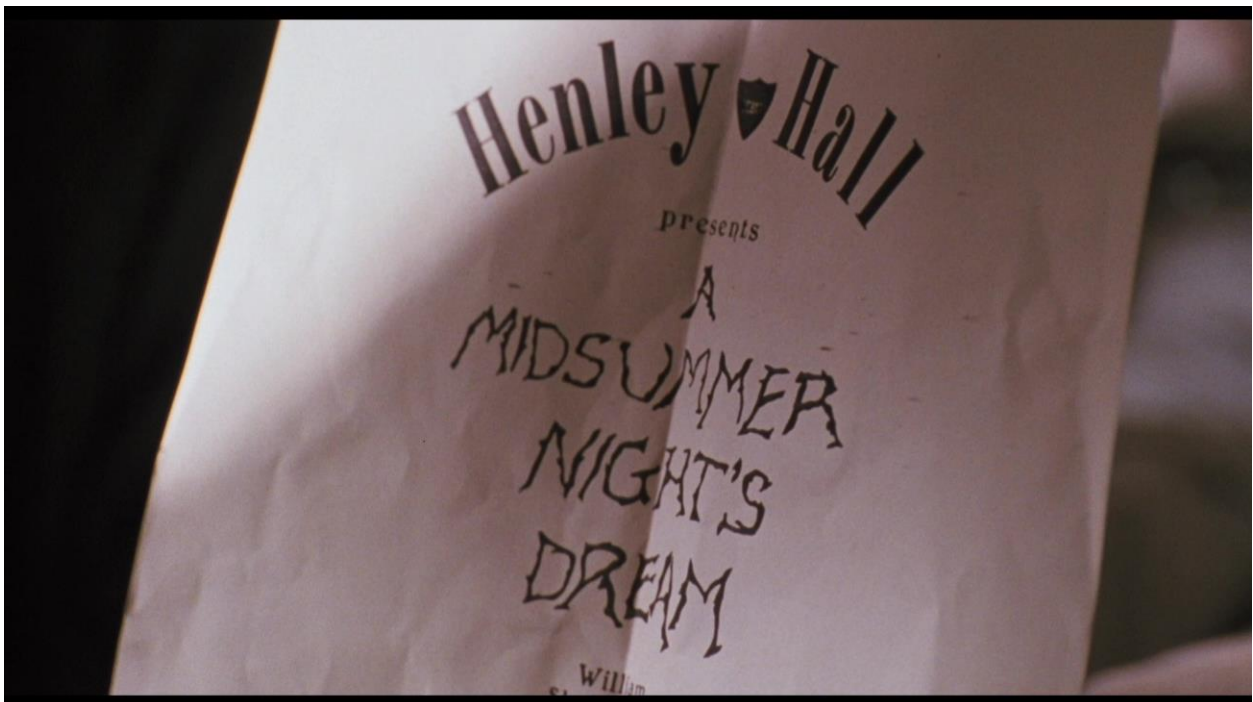 Henley Hall
presents
A
MIDSUMMER
NIGHT'S
DREAM
William